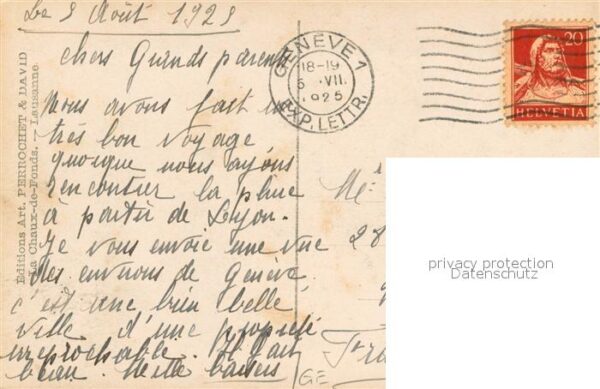 Le 5 Août 1925
Chers Grands parents
Nous avons fait un
très bon voyage
quoique nous ayons
rencontrer la pluie
à partir de Lyon.
Je vous envoie une vue
des environs de Genève
c'est une bien belle
ville d'une propreté
irréprochable. Il fait
beau. Mille baisers
Editions Art. PERROCHET & DAVID
La Chaux-de-Fonds. — Lausanne.
GENÈVE 1
18-19
VII.
1925
EXP. LETTR.
20
HELVETIA
Mr
28
privacy protection
Datenschutz
GE